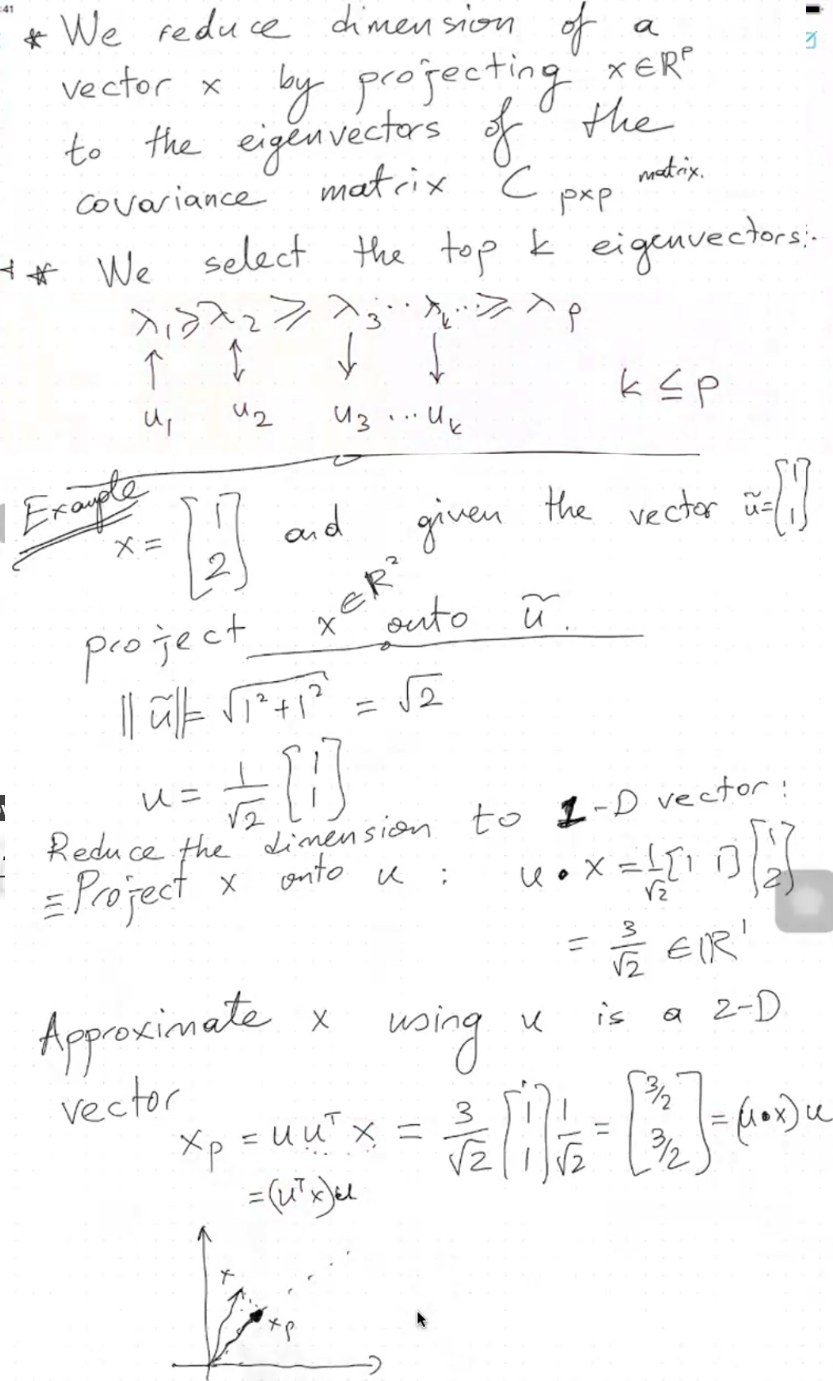 41
* We reduce dimension of a
vector x by projecting x∈ℝᵖ
to the eigenvectors of the
covariance matrix C p×p matrix.
* We select the top k eigenvectors:
λ₁ ≥ λ₂ ≥ λ₃ ·· λₖ ·· ≥ λₚ
↑ ↕ ↓ ↓
u₁ u₂ u₃ ... uₖ k ≤ p
Example
x = [1 2] and given the vector ũ = [1 1]
project x∈ℝ² onto ũ.
||ũ|| = √(1² + 1²) = √2
u = 1/√2 [1 1]
Reduce the dimension to 1-D vector:
≡ Project x onto u : u • x = 1/√2 [1 1] [1 2]
= 3/√2 ∈ ℝ¹
Approximate x using u is a 2-D
vector
xₚ = u uᵀ x = 3/√2 [1 1] 1/√2 = [3/2 3/2] = (u•x) u
= (uᵀx)u
x
xₚ